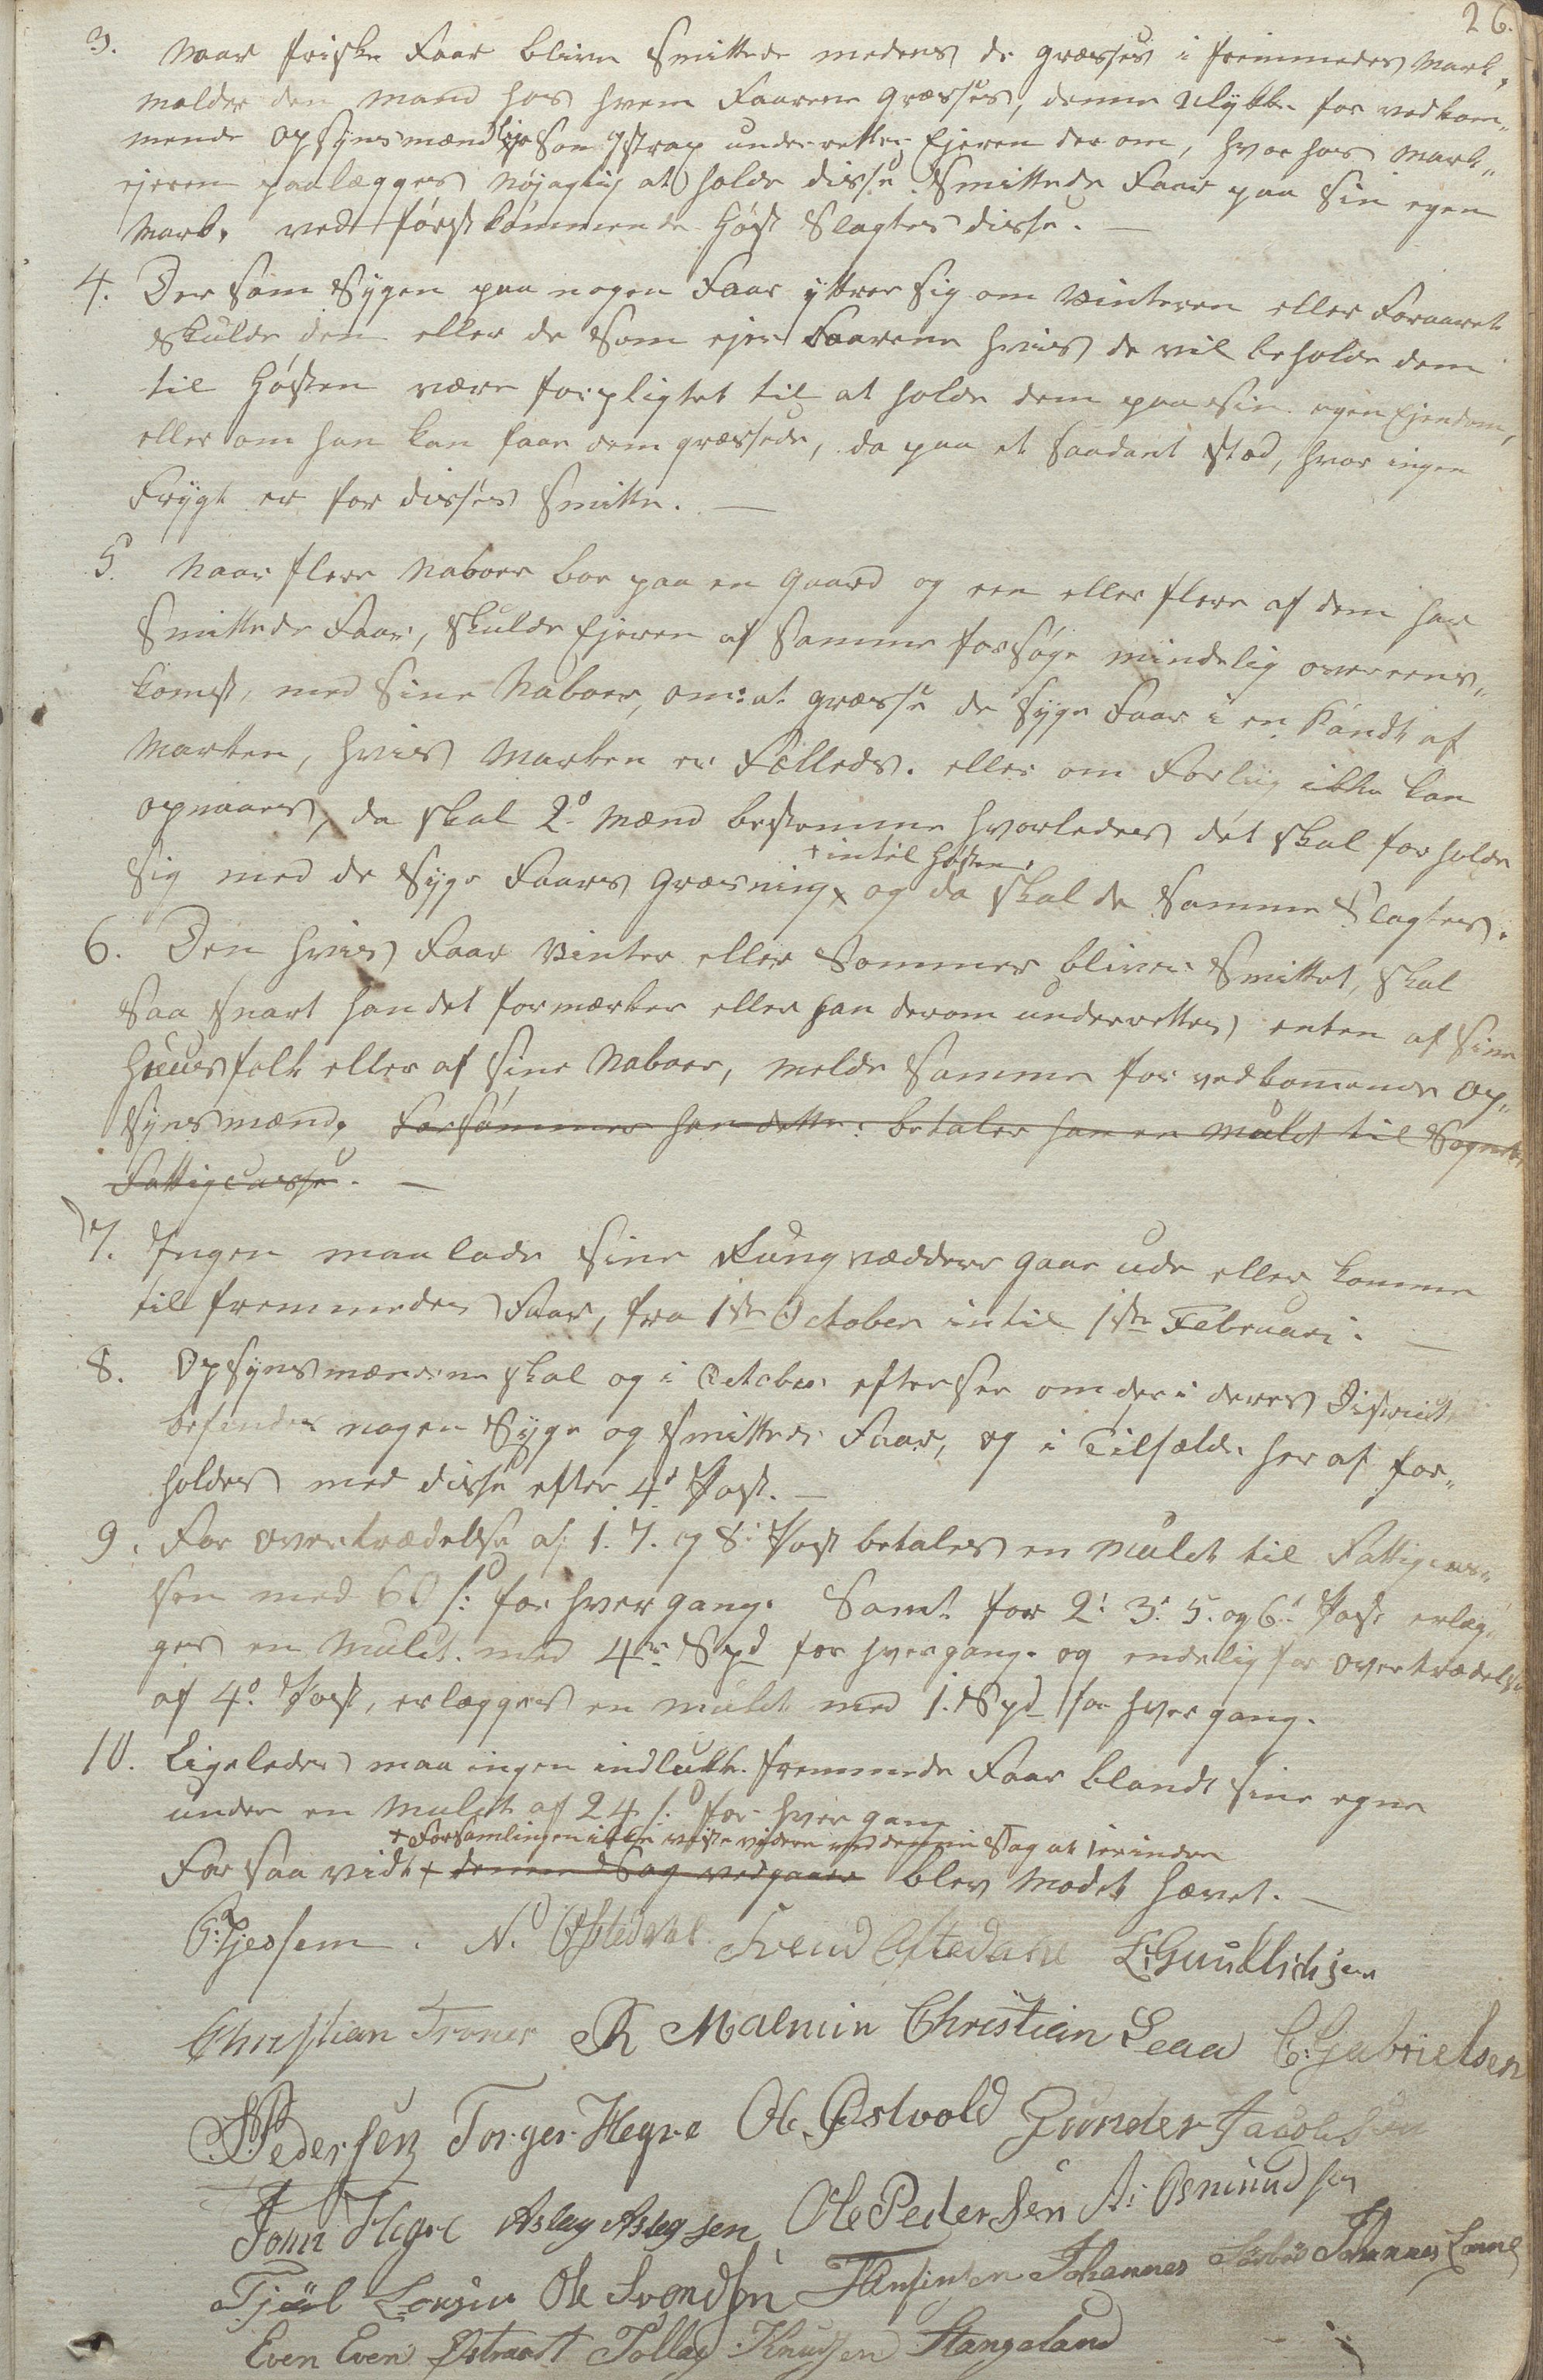 26.
3. Naar friske Faar blive smittede medens de græsses i fremmedes Mark,
melder den Mand hos hvem Faarene græsses, denne Ulykke for vedkom„
mende Opsynsmænd som Ystrap underretter Ejeren der om, hvorhos Mark„
ejeren paalægges nøjagtig at holde disse smittede Faar paa sin egen
Mark, ved førstkommende Høst slagtes disse. —
4. Der som Sygen paa nogen Faar yttrer sig om Vinteren eller Foraaret
skulde den eller de som ejer Faarene hvis de vil beholde dem
til Høsten være forpligtet til at holde dem paa sin egen Ejendom,
eller om han kan faae dem græssede, da paa et saadant Stæd, hvor ingen
Frygt er for disses Smitte. —
5. Naar flere Naboer boe paa en Gaard og een eller flere af dem har
smittede Faar, skulde Ejeren af samme forsøge mindelig overeens„
komst, med sine Naboer, om: at græsse de syge Faar i en Kandt af
Marken, hvis Marken er Fælleds. eller om Forliig ikke kan
opnaaes, da skal 2de Mænd bestemme hvorledes det skal forholde
+ intil Høsten.
sig med de syge Faars Græsning + og da skal de samme Slagtes.
6. Den hvis Faar Vinter eller Sommer bliver smittet, skal
saa snart han det formærker eller han derom underrettes enten af sine
Huusfolk eller af sine Naboer, melde samme for vedkomende Op„
synsmænd, Forsømmer han dette: betaler han en Mulct til Sognets
Fattigcasse. —
7. Ingen maa lade sine Rung væddere gaae ude eller komme
til fremmedes Faar, fra 1ste October intil 1ste Februari. —
8. Opsynsmændene skal og i October efterser om der i deres District
befindes nogen Syge og smittede Faar, og i Tilfælde her af for„
holdes med disse efter 4de Post. —
9. For Overtrædelse af 1. 7. og 8de Post betales en Mulct til Fattigcas„
sen med 60 s: for hver gang. Samt for 2: 3: 5. og 6te Post erlæg„
ges en Mulct med 4re Spd for hver gang. og endelig for Overtrædelse
af 4de Post, erlægges en Mulct med 1. Spd for hver gang.
10. Ligeledes maa ingen indlukke fremmede Faar blandt sine egne
under en Mulct af 24 s. for hver gang
+ Forsamlingen ikke viste videre ved denne Sag at ierindre
Forsaavidt + denne Sag vedgaaer blev Mødet hævet. —
G. Tjessem. N. Osstedahl Svend Asstedahl L. Gundlichsen
Christian Trones R Malmin Christian Leaa C: Gabrielsen
S Pedersen Torger Hegre Ole Østvold Gunder Jacobsen
John Hegre Aslag Aslagsen Ole Pedersen A: Osmundsen
Tjøl Longin Ole Svendsen Johannes Sørbøe Johannes Lonne
Even Even Østraadt Tollag Knudsen Stangeland